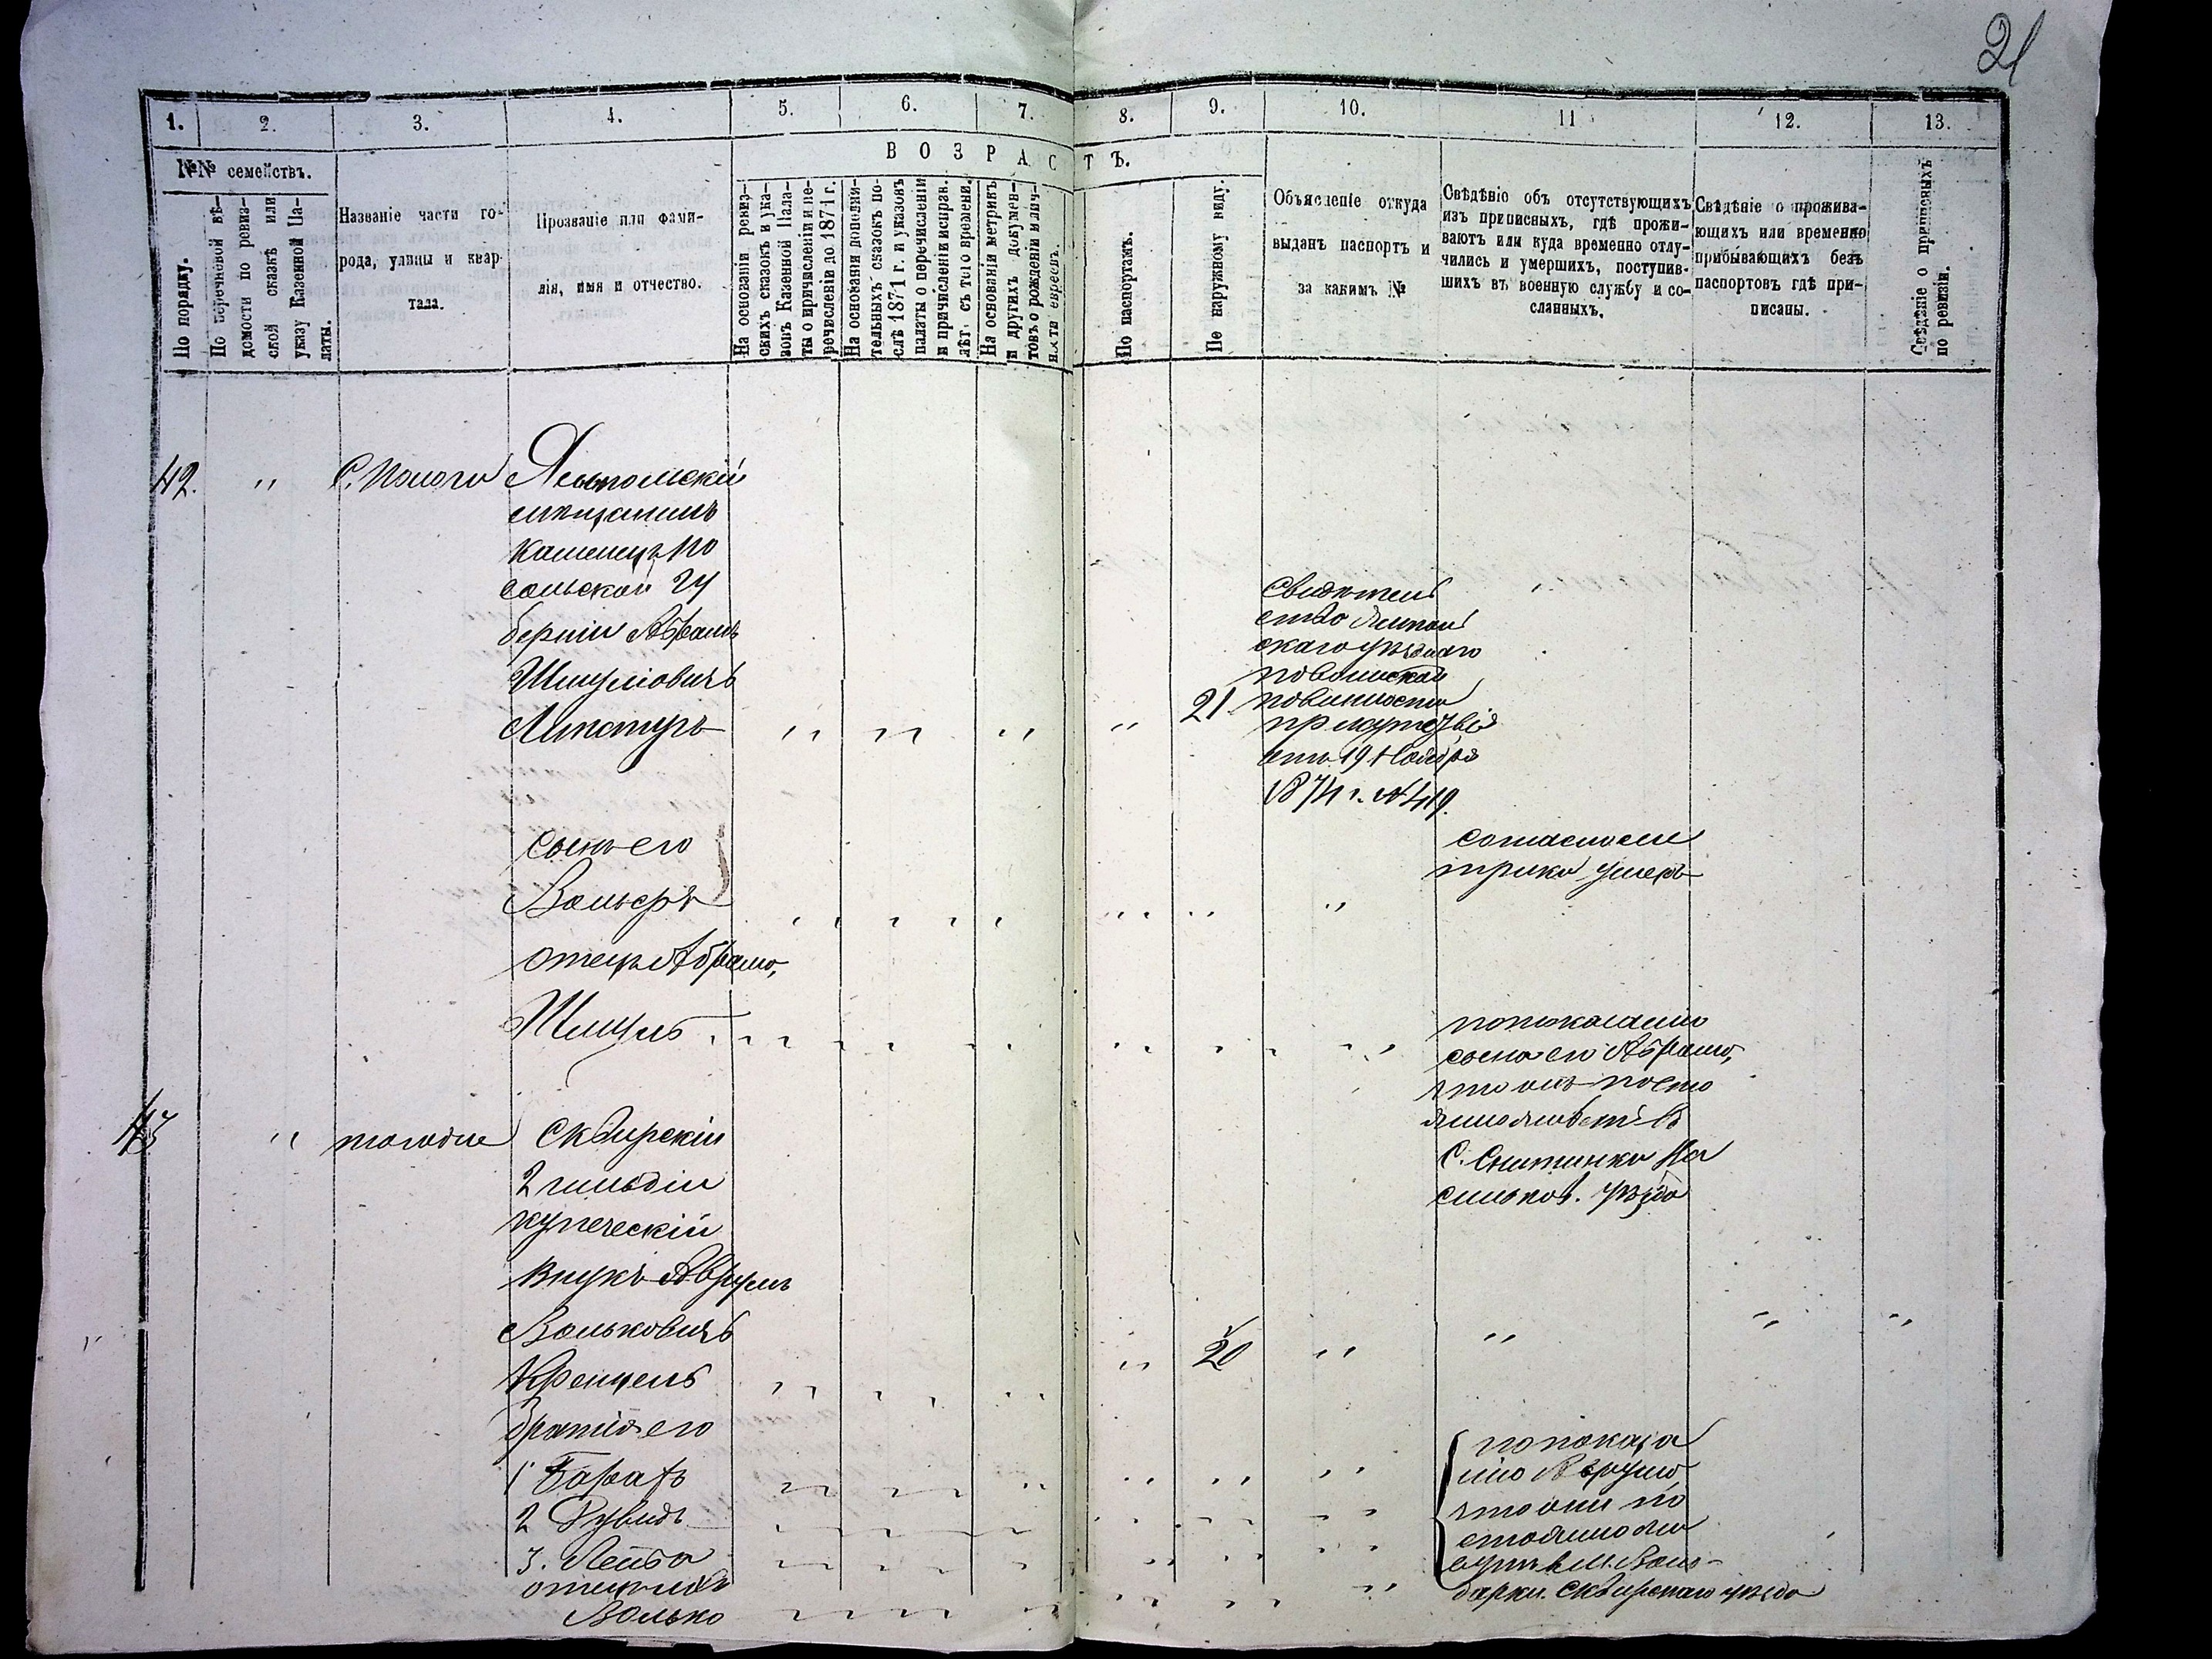 21
1. 2. 3. 4. 5. 6. 7. 8. 9. 10. 11 12. 13.
№№ семействъ.
ВОЗРАСТЪ.
По порядку.
По перечневой вѣ-
домости по ревиз-
ской сказкѣ или
указу Казенной Па-
латы.
Названіе части го-
рода, улицы и квар-
тала.
Прозваніе или фами-
лія, имя и отчество.
На основаніи ревиз-
скихъ сказокъ и ука-
зовъ Казенной Пала-
ты о причисленіи и пе-
речисленіи до 1871 г.
На основаніи дополни-
тельныхъ сказокъ по-
слѣ 1871 г. и указовъ
палаты о перечисленіи
и причисленіи исправ.
лѣт. съ того времени.
На основаніи метрикъ
и другихъ докумен-
товъ о рожденіи и лич-
ности евреевъ.
По паспортамъ.
По наружному виду.
Объясленіе откуда
выданъ паспортъ и
за какимъ №
Свѣдѣніе объ отсутствующихъ
изъ приписныхъ, гдѣ прожи-
ваютъ или куда временно отлу-
чились и умершихъ, поступив-
шихъ въ военную службу и со-
сланныхъ.
Свѣдѣніе о прожива-
ющихъ или временно
прибывающихъ безъ
паспортовъ гдѣ при-
писаны.
Свѣдѣніе о приписныхъ
по ревизіи.
42. " С.
мѣщанинъ
Каменецъ По
дольской Гу
берніи Абрамъ
Шмулiовичъ
" " " " 21
Свидѣтель
ство
скаго уѣзднаго
по воинской
повинности
присутствія
отъ 19 Ноября
1874 г. №419.
сынъ его
Вольфъ
согласно ме
трики умеръ
отецъ Абрама,
Шмуль
по показанію
сына его Абрама,
что онъ посто
янно живетъ въ
С. Снитинки Ва
сильков. уѣзда
43 " тоже Сквирскій
2 гильдіи
купеческій
внукъ Аврумъ
Вольковичъ
" 20 " " " "
братія его
1
2 Рувидъ
3. Лейба
отецъ ихъ
Волько
по показа
нію Аврума,
что они по
стоянно жи
вутъ в М. Воло-
дарки. Сквирскаго уѣзда